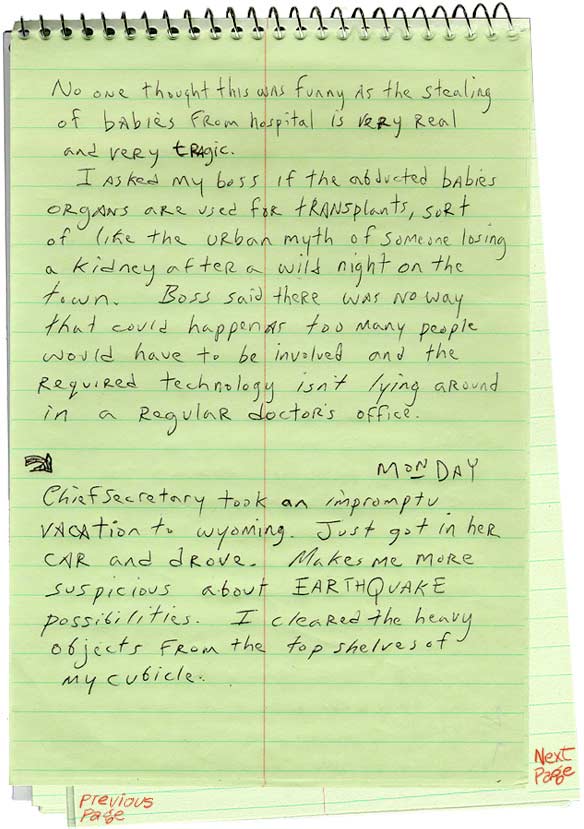 No one thought this was funny as the stealing
of babies from hospital is very real
and very tragic.
I asked my boss if the abducted babies
organs are used for transplants, sort
of like the urban myth of someone losing
a kidney after a wild night on the
town. Boss said there was no way
that could happen as too many people
would have to be involved and the
required technology isn't lying around
in a regular doctor's office.
MONDAY
Chief Secretary took an impromptu
vacation to wyoming. Just got in her
car and drove. Makes me more
suspicious about EARTHQUAKE
possibilities. I cleared the heavy
objects from the top shelves of
my cubicle.
Next
Page
Previous
Page